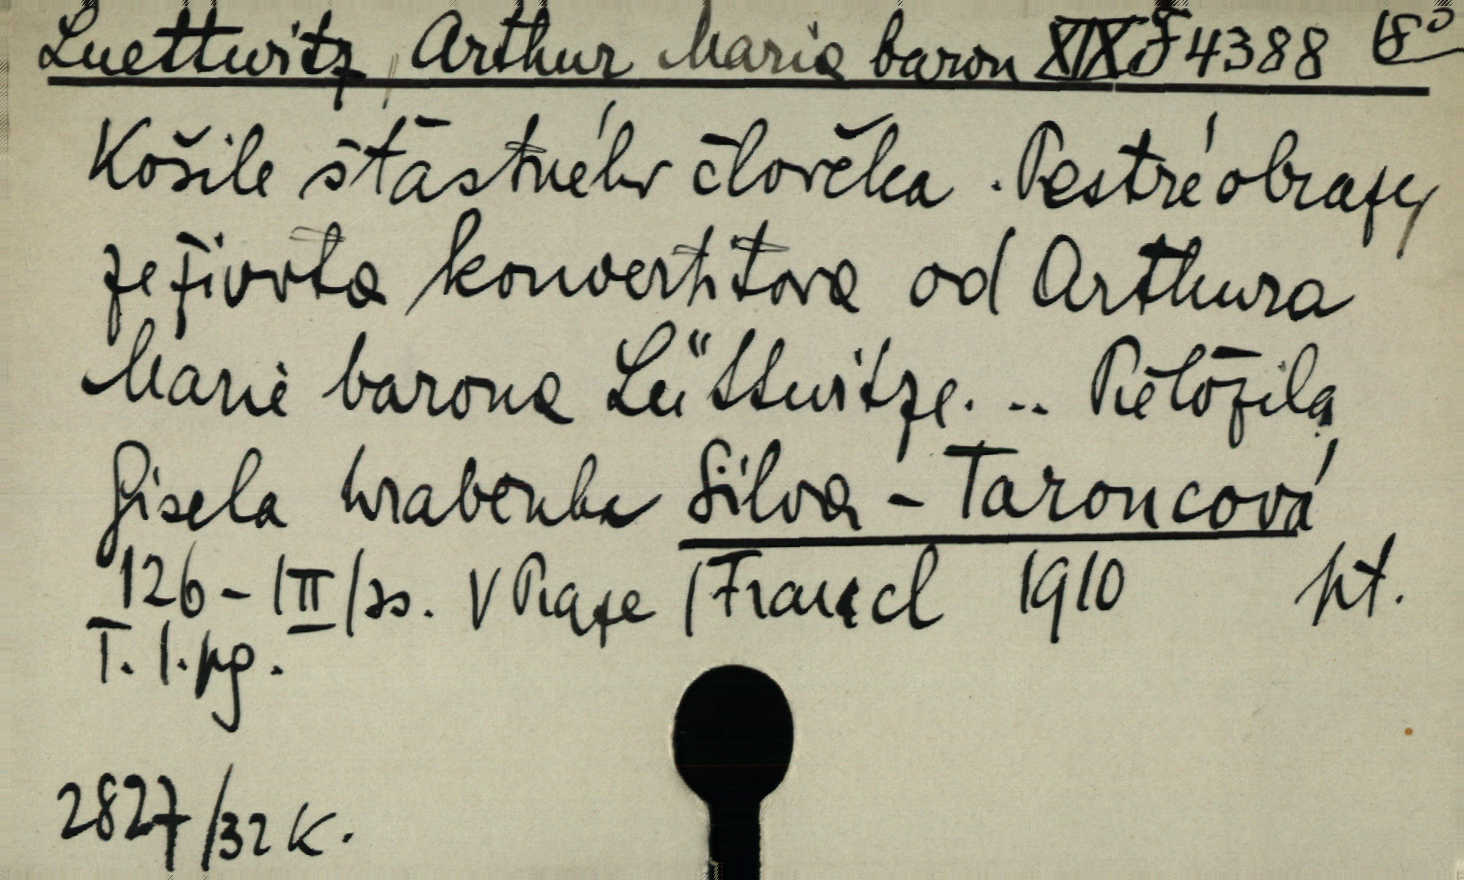 Luettwitz, Arthur Maria baron XIX F 4388 8°
Košile šťastného člověka. Pestré obrazy
ze života konvertitova od Arthura
Marie barona Lüttwitze. .. Přeložila
Gisela hraběnka Silva - Taroucová
126 - |II| ss. V Praze / Francl 1910 pt.
T. 1. pg.
2827/32 K.